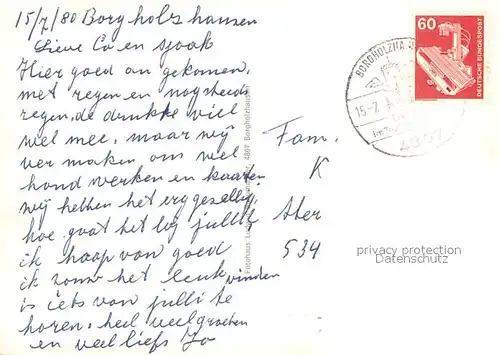 15/7/80 Borgholzhausen
Lieve Co en Sjaak
Hier goed an gekomen,
met regen en nog steeds
regen, de drukte viel
wel mee, maar wij
ver maken ons wel
hand werken en kaarten
wij hebben het erg gezellig,
hoe gaat het bij jullie
ik hoop van goed
ik zou het leuk vinden
is iets van julli te
horen. heel veel groeten
en veel liefs Jo
Fam.
K
Ater
534
60
DEUTSCHE BUNDESPOST
BORGHOLZHA
15-7.
4807
Fotohaus
4807 Borgholzhausen
privacy protection
Datenschutz